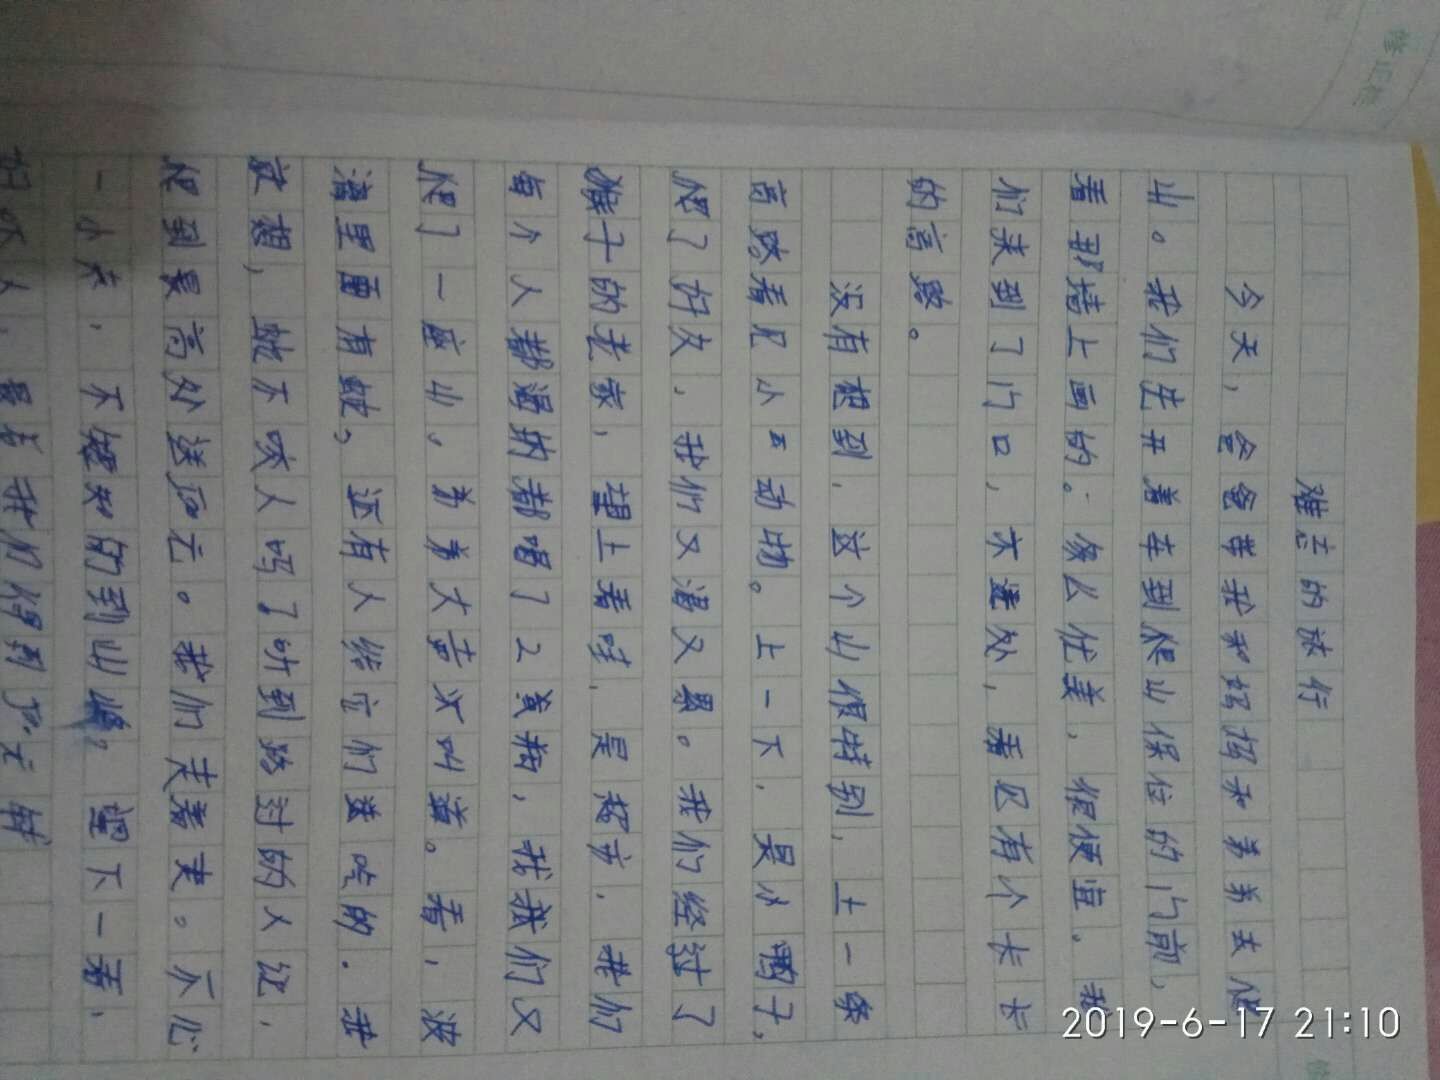 难忘的旅行
今天，爸爸带我和妈妈和弟弟去爬
山。我们先开着车到爬山保位的门前，
看那墙上画的。多么优美，很便宜。我
们来到了门口，不远处，看见有个长长
的高路。
没有想到，这个山很特别，上一条
高路看见小动物。上一下，是小鸭子，
爬了好久，我们又渴又累。我们经过了
猴子的老家，望上看哇，是超市，我们
每个人都渴的都喝了2瓶，我我们又
爬了一座山。弟弟大声次叫着。看，波
里面有蛇，还有人给它们送吃的．我
就想，蛇不咬人吗？听到路过的人说，
爬到最高处送回去。我们走着走。不心
一小走，不知的到山。望下一看，
最后我们得到了
2019-6-17 21:10